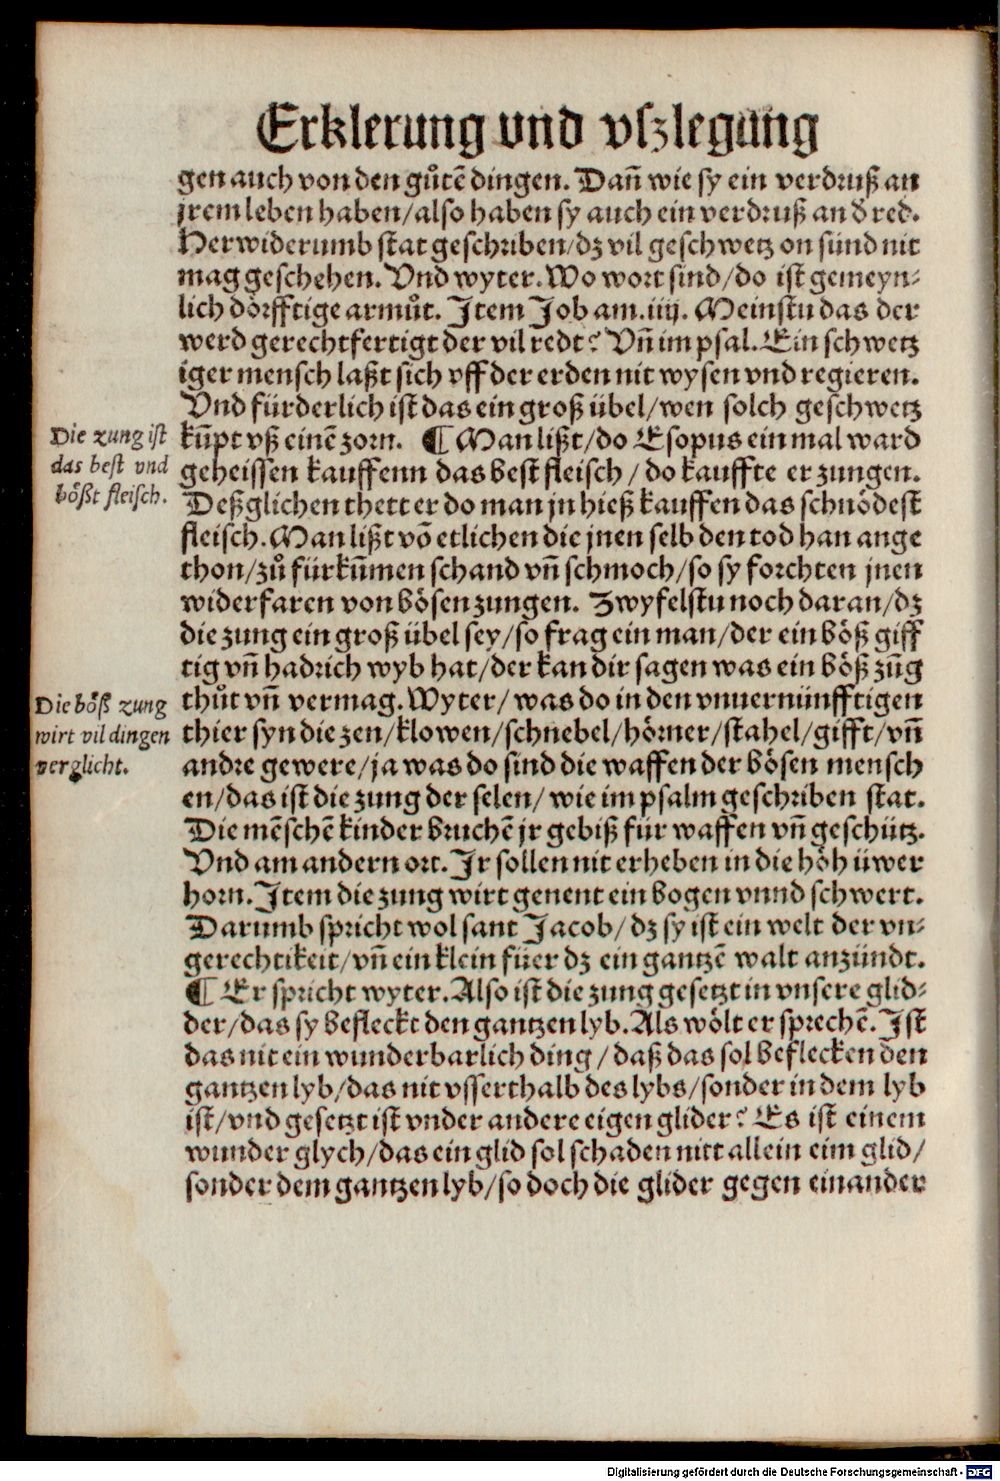 Erklerung vnd vſzlegung
gen auch von den guͦtē dingen. Dañ wie ſy ein verdruß an
jrem leben haben/alſo haben ſy auch ein verdruß an d̕ red.
Herwiderumb ſtat geſchriben/dz vil geſchwetz on ſünd nit
mag geſchehen. Vnd wyter. Wo wort ſind/do iſt gemeyn⸗
lich dörfftige armuͦt. Item Job am.iiij. Meinſtu das der
werd gerechtfertigt der vil redt? Vñ im pſal. Ein ſchwetz
iger menſch laßt ſich vff der erden nit wyſen vnd regieren.
Vnd fürderlich iſt das ein groß übel/wen ſolch geſchwetz
Die zung iſt
das beſt vnd
bößt fleiſch.
kūpt vß einē zorn. ¶ Man lißt/do Eſopus ein mal ward
geheiſſen kauffenn das beſt fleiſch / do kauffte er zungen.
Deßglichen thett er do man jn hieß kauffen das ſchnödeſt
fleiſch. Man lißt vō etlichen die jnen ſelb den tod han ange
thon/zuͦ fürkūmen ſchand vñ ſchmoch/ſo ſy forchten jnen
widerfaren von böſen zungen. Zwyfelſtu noch daran/dz
die zung ein groß übel ſey/ſo frag ein man/der ein böß giff
tig vñ hadrich wyb hat/der kan dir ſagen was ein böß zūg
Die böß zung
wirt vil dingen
verglicht.
thuͦt vñ vermag. Wyter/ was do in den vnuernünfftigen
thier ſyn die zen/klowen/ſchnebel/hörner/ſtahel/gifft/vñ
andre gewere/ja was do ſind die waffen der böſen menſch
en/das iſt die zung der ſelen/ wie im pſalm geſchriben ſtat.
Die mēſchē kinder bruchē jr gebiß für waffen vñ geſchütz.
Vnd am andern ort. Ir ſollen nit erheben in die höh üwer
horn. Item die zung wirt genent ein bogen vnnd ſchwert.
Darumb ſpricht wol ſant Jacob/ dz ſy iſt ein welt der vn⸗
gerechtikeit/vñ ein klein füer dz ein gantzē walt anzündt.
¶ Er ſpricht wyter. Alſo iſt die zung geſetzt in vnſere glid⸗
der/das ſy befleckt den gantzen lyb. Als wölt er ſprechē. Iſt
das nit ein wunderbarlich ding / daß das ſol beflecken den
gantzen lyb/das nit vſſerthalb des lybs/ſonder in dem lyb
iſt/vnd geſetzt iſt vnder andere eigen glider? Es iſt einem
wunder glych/das ein glid ſol ſchaden nitt allein eim glid/
ſonder dem gantzen lyb/ſo doch die glider gegen einander
Digitalisierung gefördert durch die Deutsche Forschungsgemeinschaft - DFG